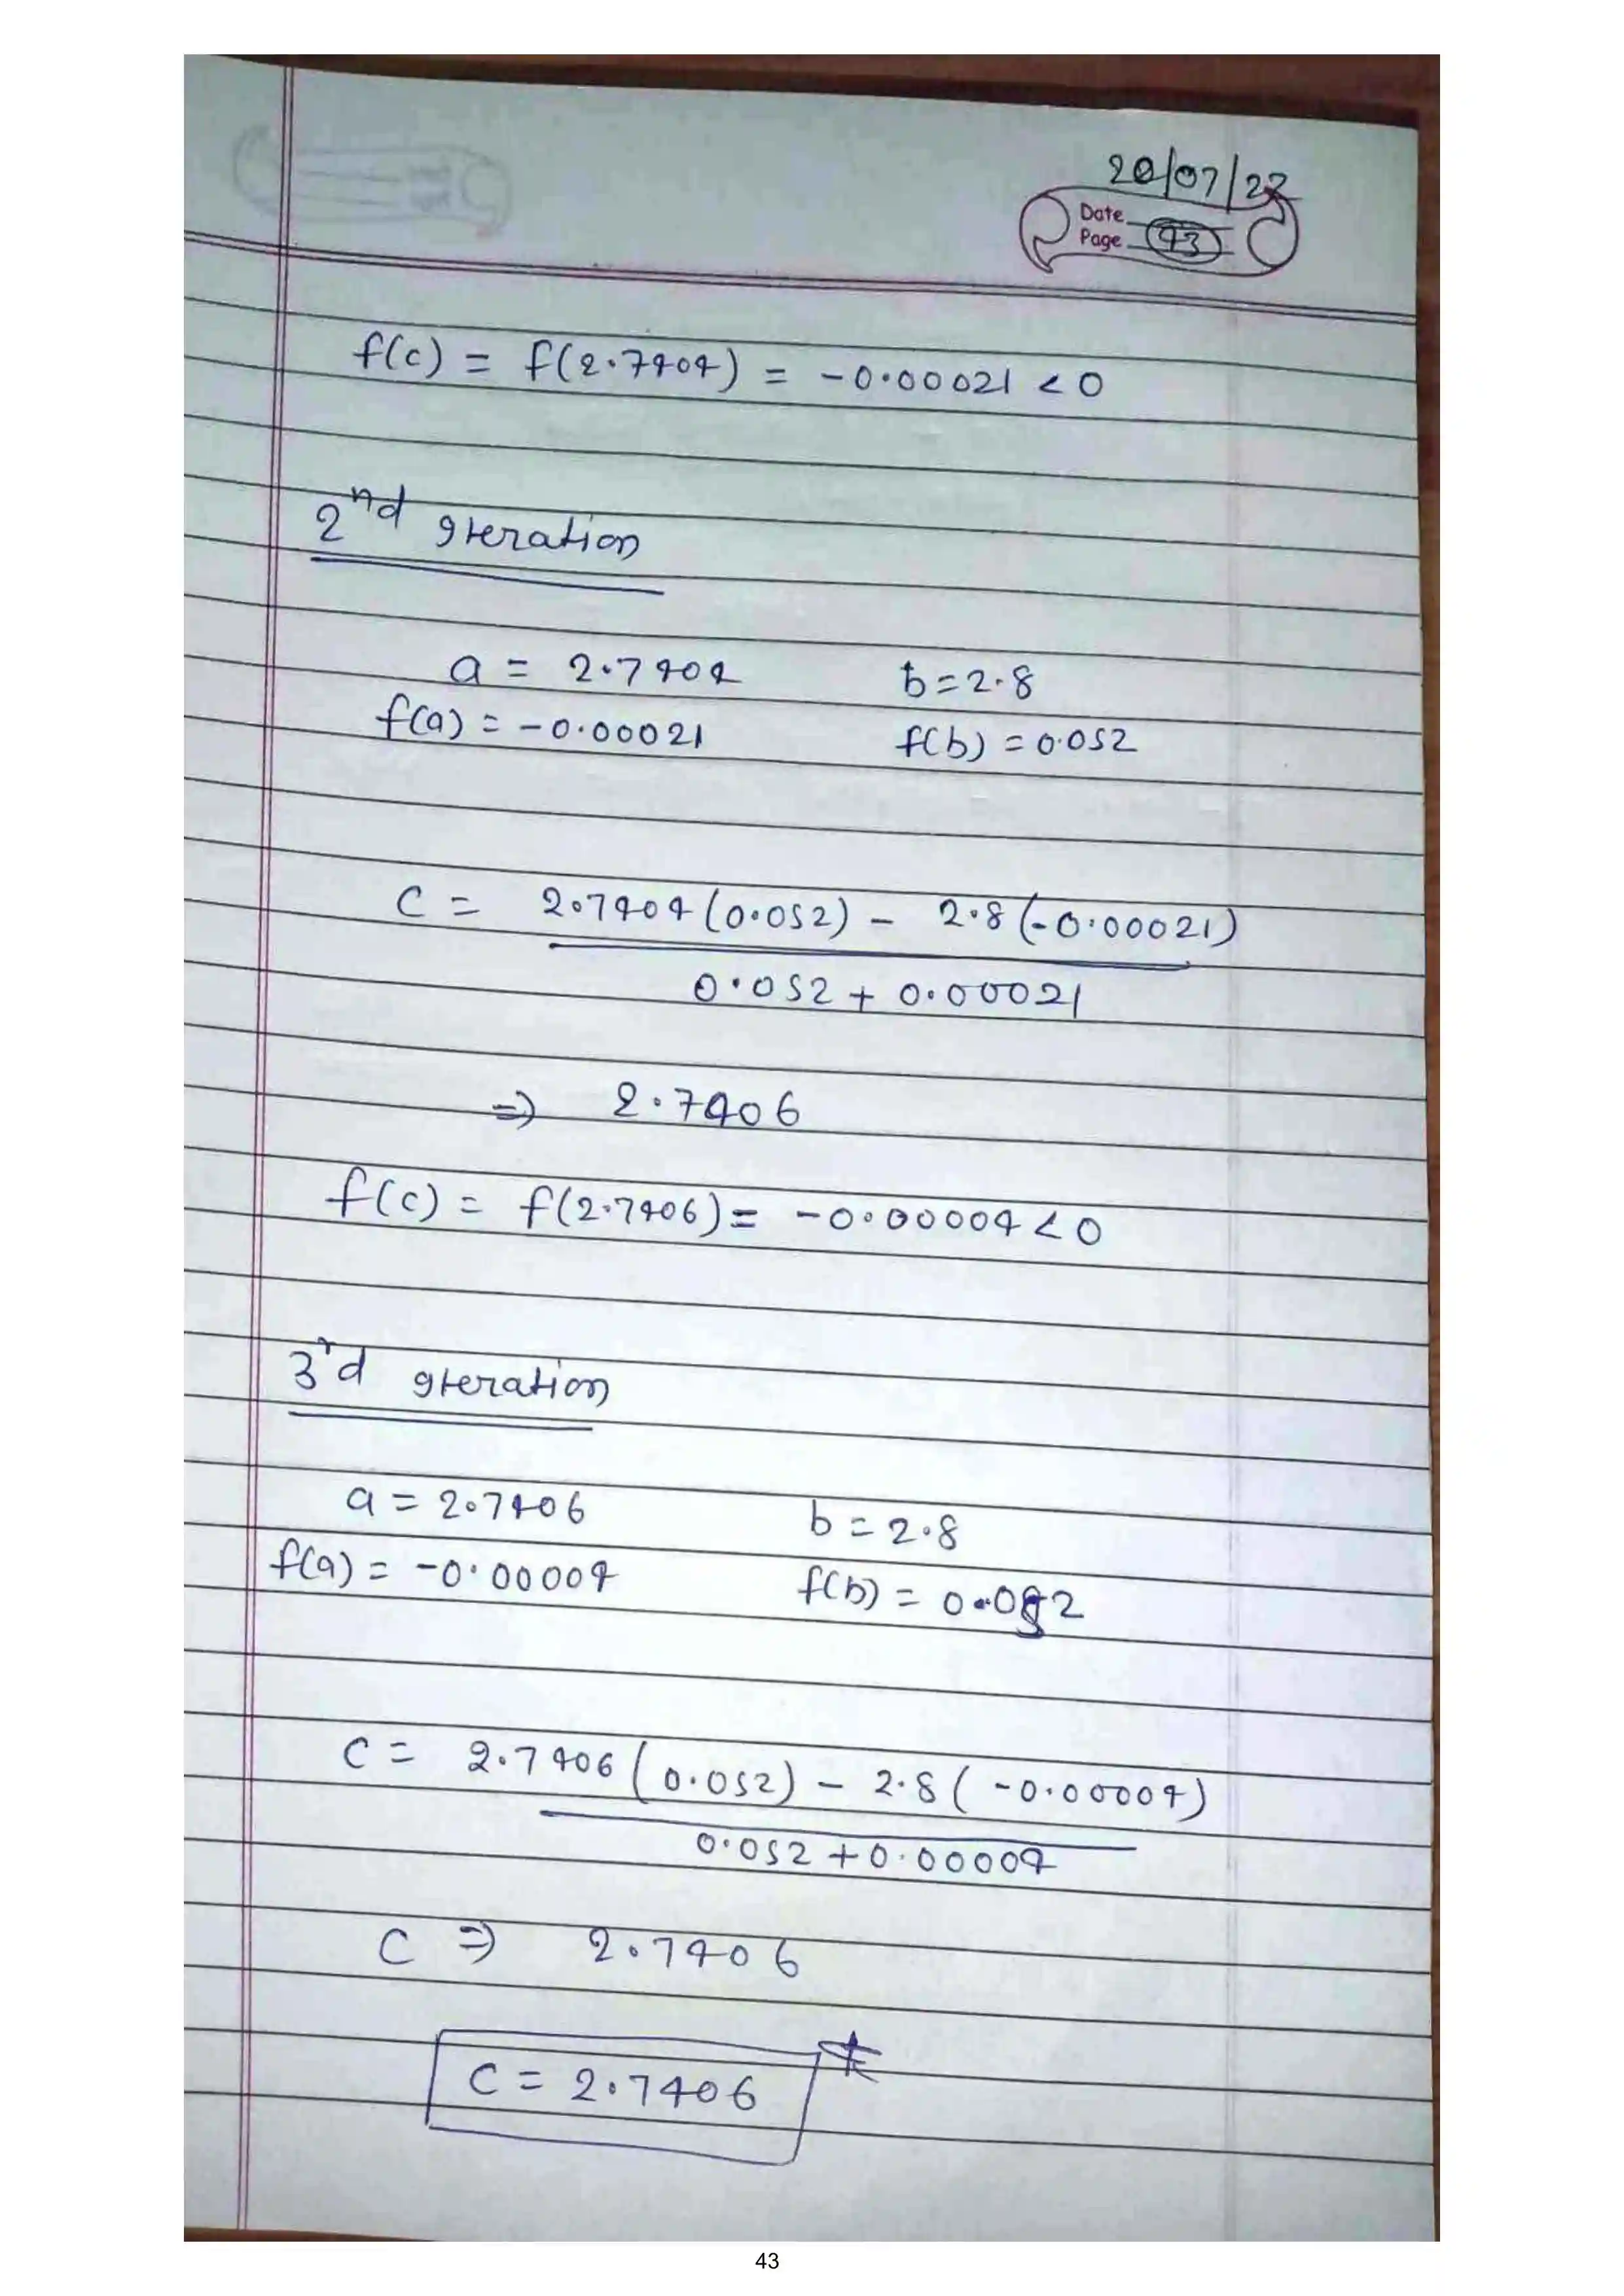 20/07/22
Date
Page 43
f(c) = f(2.7404) = -0.00021 < 0
2nd Iteration
a = 2.7404 b = 2.8
f(a) = -0.00021 f(b) = 0.052
c = 2.7404 (0.052) - 2.8 (-0.00021)
0.052 + 0.00021
⇒ 2.7406
f(c) = f(2.7406) = -0.00004 < 0
3rd Iteration
a = 2.7406 b = 2.8
f(a) = -0.00004 f(b) = 0.052
c = 2.7406 (0.052) - 2.8 (-0.00004)
0.052 + 0.00004
C ⇒ 2.7406
C = 2.7406
43